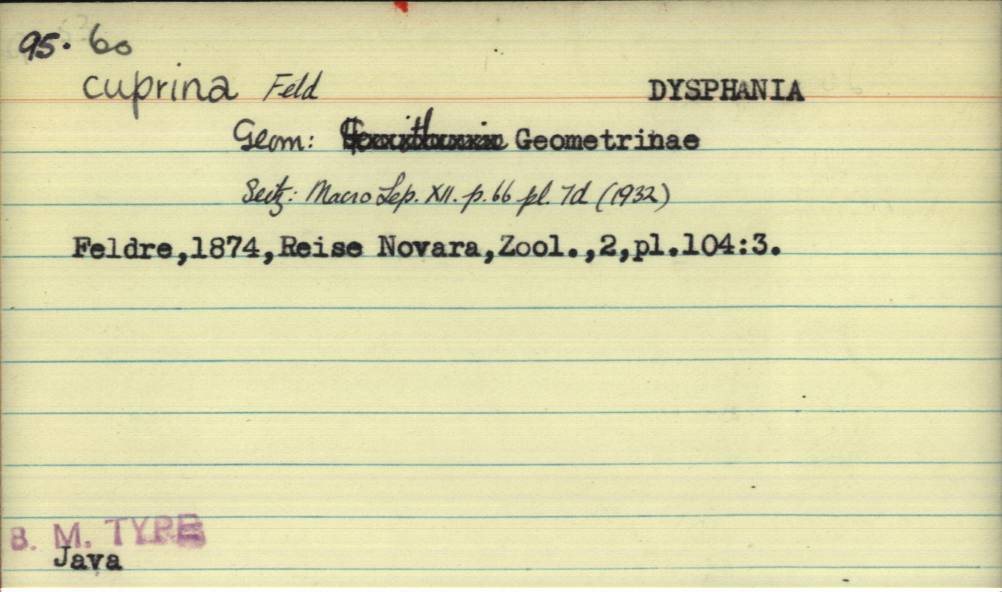 95. 60
cuprina Feld DYSPHANIA
Geom: Geometrinae
Seitz: Macro Lep. XII. p. 66 pl. 7d (1932)
Feldre,1874,Reise Novara,Zool.,2,pl.104:3.
B. M. TYPE
Java